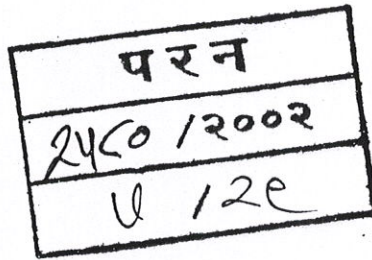 परन
२५८०/२००२
७ /२९